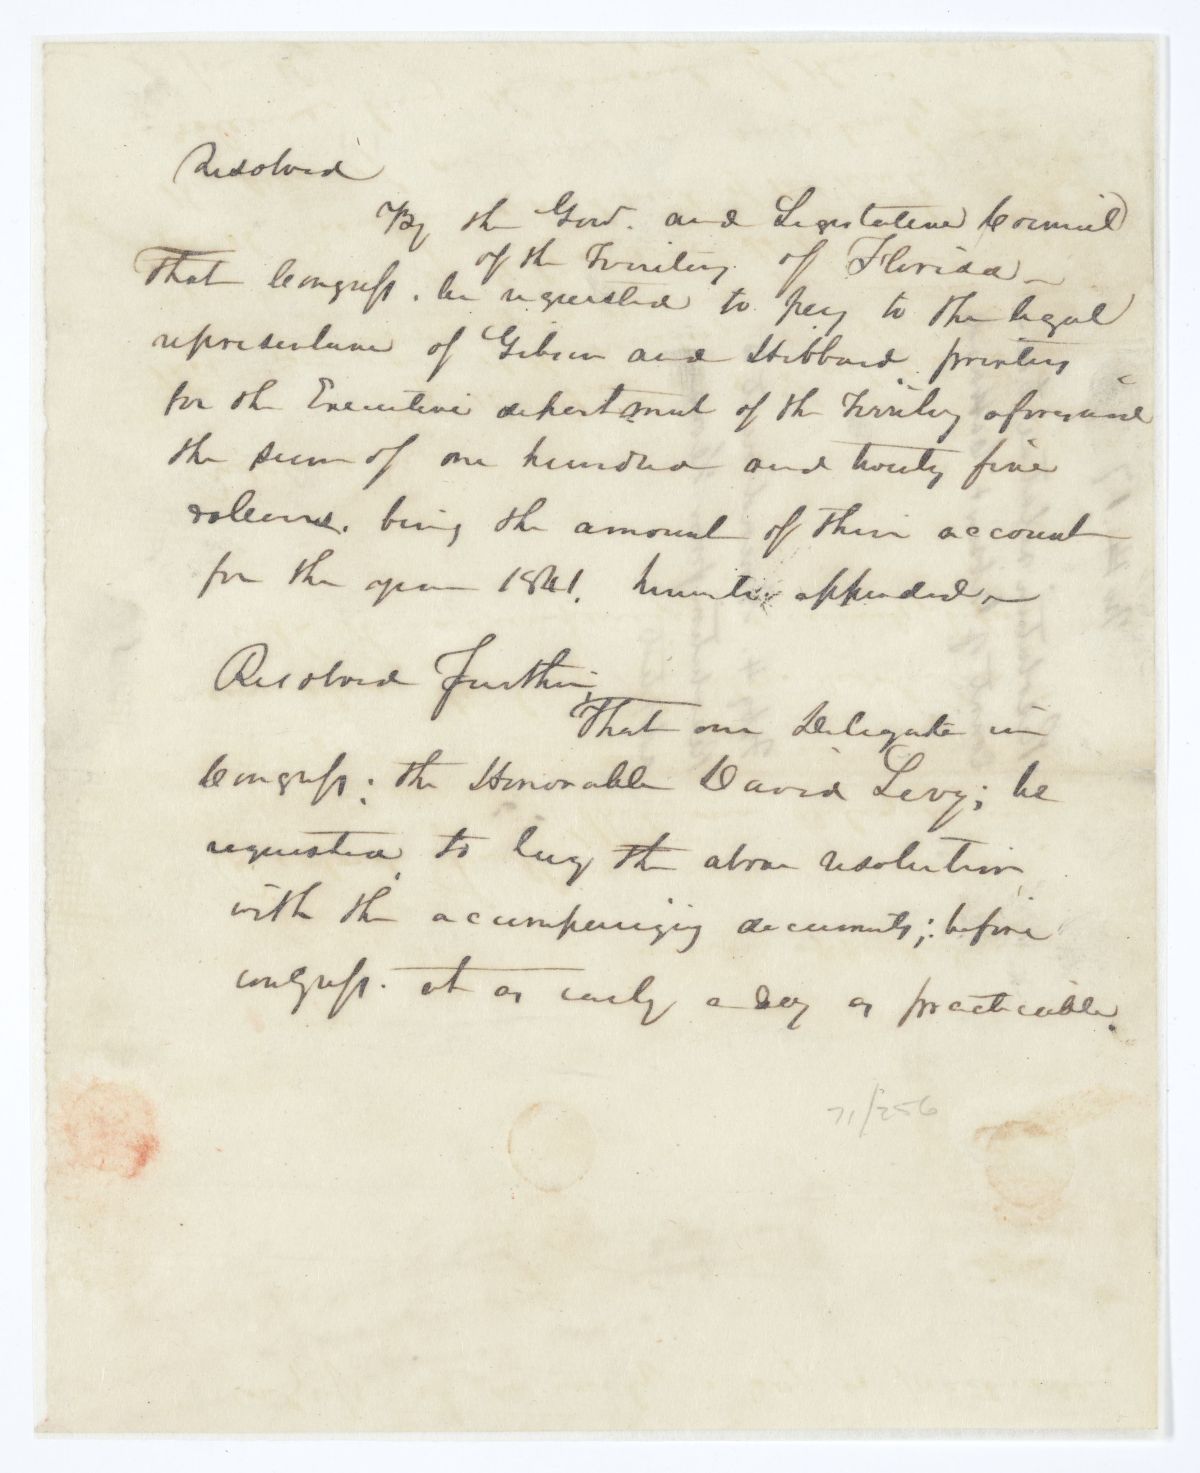 Resolved
By the Gov. and Legislative Council
of the Territory of Florida
That Congress. be requested to pay to the legal
representative of Gibson and Hibbard printers
for the Executive department of the Territory aforesaid
the sum of one hundred and twenty five
dollars. being the amount of their account
for the year 1841. hereunto appended
Resolved Further,
That our Delegate in
Congress; the Honorable David Levy; be
requested to lay the above resolution
with the accompanying documents; before
congress. at as early a day as practicable.
71/256